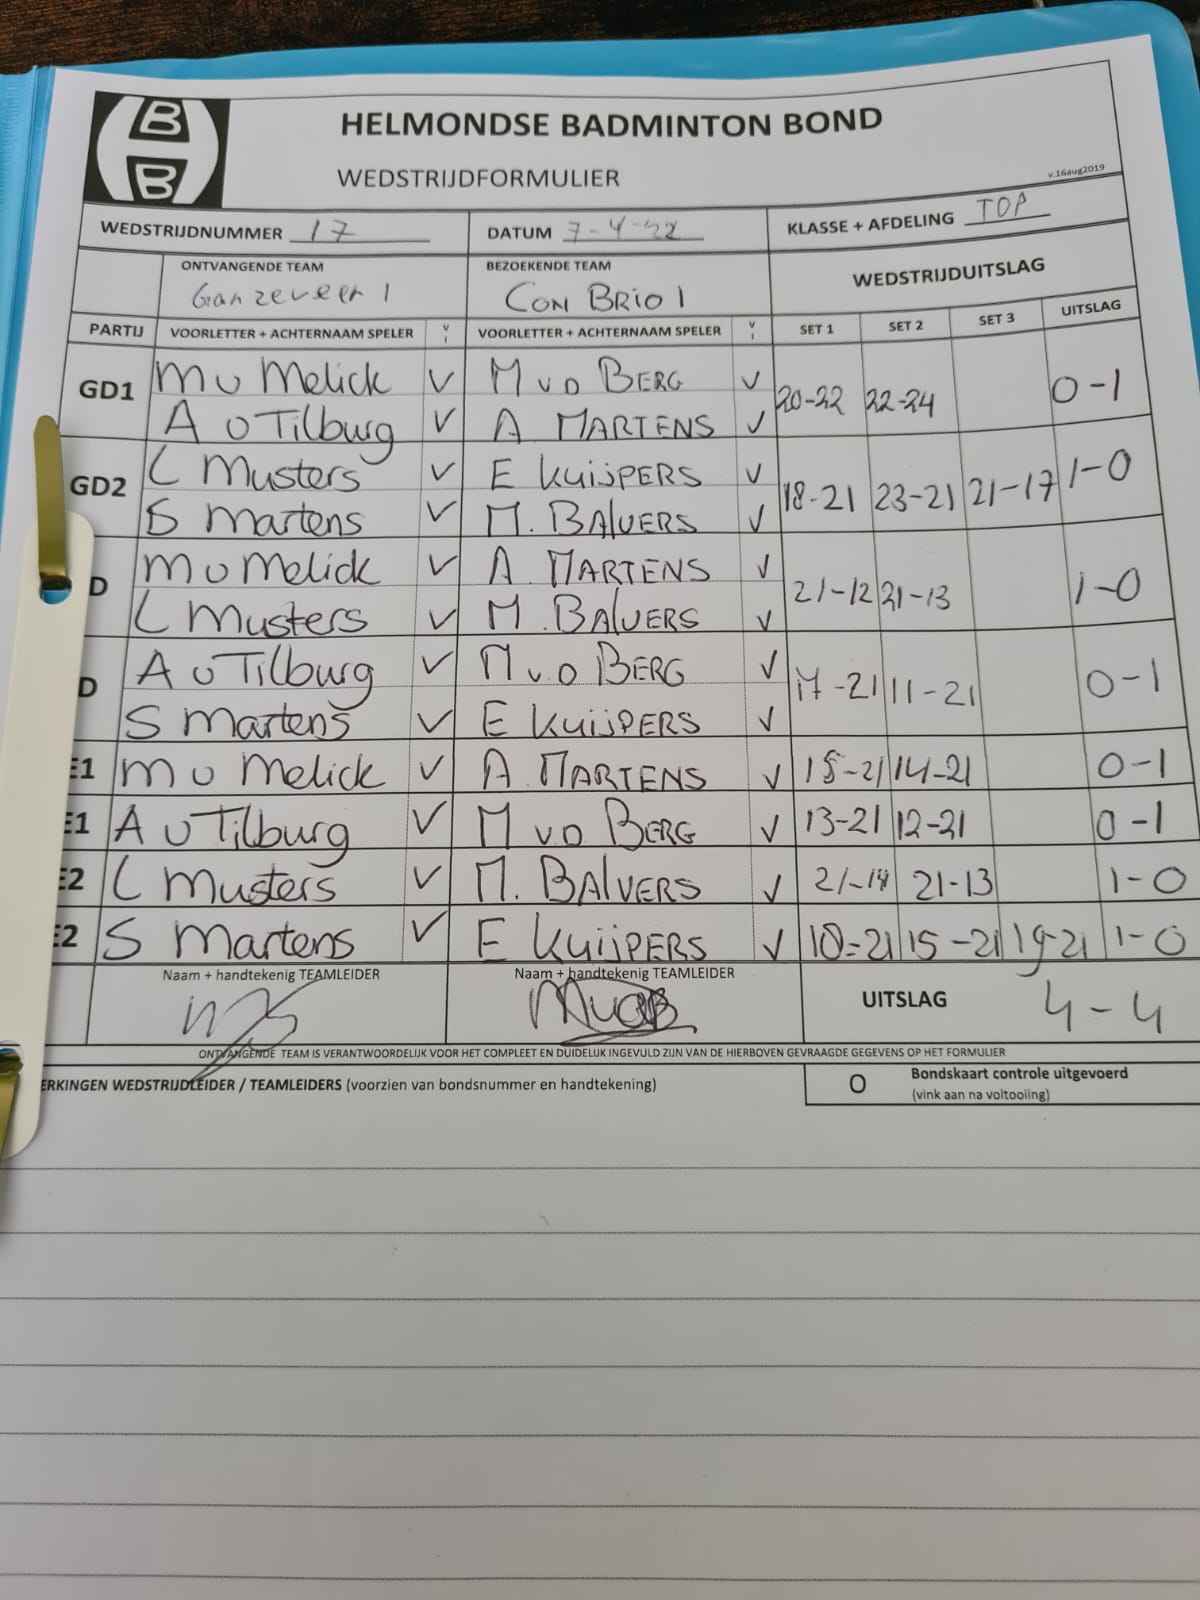 B
B
HELMONDSE BADMINTON BOND
WEDSTRIJDFORMULIER
v.16aug2019
WEDSTRIJDNUMMER 17 DATUM 7-4-22 KLASSE + AFDELING TOP
ONTVANGENDE TEAM BEZOEKENDE TEAM WEDSTRIJDUITSLAG
Ganzeveer 1 CON BRIO 1
PARTIJ VOORLETTER + ACHTERNAAM SPELER V I VOORLETTER + ACHTERNAAM SPELER V I SET 1 SET 2 SET 3 UITSLAG
GD1 M v Melick V M v D BERG V 20-22 22-24 0-1
A v Tilburg V A MARTENS V
GD2 L Musters V E KUIJPERS V 18-21 23-21 21-17 1-0
S Martens V M. BALVERS V
D M v Melick V A MARTENS V 21-12 21-13 1-0
L Musters V M. BALVERS V
D A v Tilburg V M v D BERG V 17-21 11-21 0-1
S Martens V E KUIJPERS V
E1 M v Melick V A MARTENS V 15-21 14-21 0-1
E1 A v Tilburg V M v D BERG V 13-21 12-21 0-1
E2 L Musters V M. BALVERS V 21-14 21-13 1-0
E2 S Martens V E KUIJPERS V 18-21 15-21 19-21 1-0
Naam + handtekenig TEAMLEIDER Naam + handtekenig TEAMLEIDER
UITSLAG 4-4
ONTVANGENDE TEAM IS VERANTWOORDELIJK VOOR HET COMPLEET EN DUIDELIJK INGEVULD ZIJN VAN DE HIERBOVEN GEVRAAGDE GEGEVENS OP HET FORMULIER
ERKINGEN WEDSTRIJDLEIDER / TEAMLEIDERS (voorzien van bondsnummer en handtekening) O Bondskaart controle uitgevoerd
(vink aan na voltooiing)